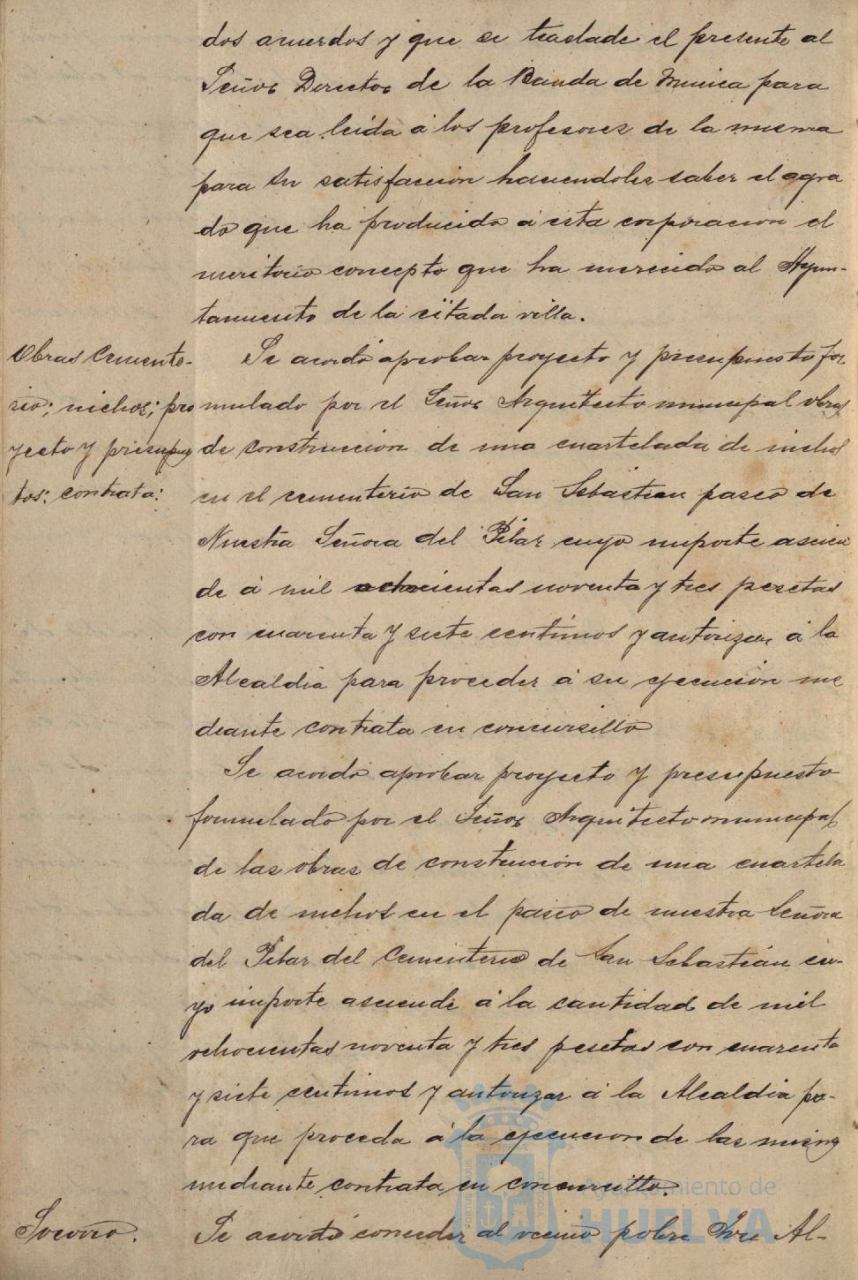 dos acuerdos y que se traslade el presente al
Señor Director de la Banda de Musica para
que sea leida á los profesores de la misma
para su satisfacción haciendoles saber el agra
do que ha producido á esta corporacion el
meritorio concepto que ha merecido al Ayun-
tamiento de la citada villa.
Obras Cemente-
rio; nichos; pro
yecto y presupues
tos; contrata:
Se acordó aprobar proyecto y presupuesto for
mulado por el Señor Arquitecto municipal obras
de construcción de una cuartelada de nichos
en el cementerio de San Sebastian paseo de
Nuestra Señora del Pilar cuyo importe ascien
de á mil ochocientas noventa y tres pesetas
con cuarenta y siete centimos y autorizar á la
Alcaldia para proceder á su ejecución me
diante contrata en concursillo
Se acordó aprobar proyecto y presupuesto
formulado por el Señor Arquitecto municipal
de las obras de construcción de una cuartela
da de nichos en el paseo de nuestra Señora
del Pilar del Cementerio de San Sebastián cu-
yo importe asciende á la cantidad de mil
ochocientas noventa y tres pesetas con cuarenta
y siete centimos y autorizar á la Alcaldia pa-
ra que proceda á la ejecucion de las mismas
mediante contrata en concursillo.
Socorro.
Se acordó conceder al vecino pobre José Al-
Ayuntamiento de
HUELVA